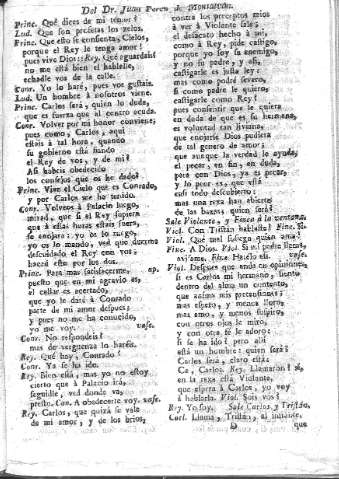 Del Dr. Juan Perez de Montalvan.
Princ. Què dices de mi temor?
Lud. Que son precisos los zelos.
Princ. Que esto se consienta, Cielos,
porque el Rey le tenga amor!
pues vive Dios: Rey. Què aguardais?
no me està bien el hablalle,
echalle vos de la calle.
Con. Yo lo harè, pues vos gustais.
Lud. Un hombre à nosotros viene.
Princ. Carlos serà, quien lo duda,
que es fuerza que al centro acuda.
Con. Volver por mi honor conviene;
pues como, Carlos, aqui
estais à tal hora, quando
su gobierno està
el Rey de vos, y de mi?
Asi habeis obedecido
los consejos que os he dado?
Princ. Vive el Cielo que es Conrado,
y por Carlos me ha tenido.
Con. Volveos à Palacio luego,
mirad, que si el Rey supiera
que à estas horas estais fuera,
se enojàra: yo os lo ruego,
yo os lo mando, ved que duerme
descuidado el Rey con vos:
haced esto por los dos.
Princ. Para mas satisfacerme, ap.
puesto que en mi agravio es,
el callar es acertado,
que yo le darè à Conrado
parte de mi amor despues;
y pues no me ha conocido,
yo me voy. vase.
Con. No respondeis?
mas de verguenza lo hareis.
Rey. Què hay, Conrado?
Con. Ya se ha ido.
Rey. Bien està, mas yo no estoy
cierto que à Palacio irà,
seguidle, ved donde va,
presto. Con. A obedecerte voy. vase.
Rey. Carlos, que quizà se vale
de mi amor, y de los brios,
contra los preceptos mios
à ver à Violante sale;
el desacato hecho à mi,
como à Rey, pide castigo,
porque yo soy su enemigo,
y no su padre, y asi,
castigarle es justa ley:
mas como podrè severo,
si como padre le quiero,
castigarle como Rey!
pues consentir que le quiera
en duda de que es su hermana,
es voluntad tan liviana,
que enojarse Dios pudiera
de tal genero de amor;
que aunque la verdad le ayuda,
el pecar, en fin, en duda,
para con Dios, ya es pecar,
y lo peor es, que està
casi todo descubierto:
mas una rexa han abierto
de las baxas, quien serà?
Sale Violante, y Finea à la ventana.
Viol. Con Tristàn hablaste? Fine. Sì.
Viol. Què mal sosiega quien ama!
Fine. A Dios. Viol. Si mi padre llama,
avisame. Fine. Harèlo asi. vase.
Viol. Despues que anda en opiniones,
si es Carlos mi hermano, siento
dentro del alma un contento,
que anima mis pretensiones:
mas espero, y menos lloro,
mas amo, y menos suspiro,
con otros ojos le miro,
y con otra fe le adoro:
si se ha ido? pero alli
està un hombre: quien serà?
Carlos serà, claro està:
Ce, Carlos. Rey. Llamaron? sì,
en la rexa està Violante,
que espera à Carlos, yo voy
à hablarla. Viol. Sois vos?
Rey. Yo soy. Sale Carlos, y Tristàn.
Carl. Llama, Tristàn, al instante,
D que